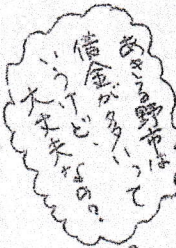 あきる野市は
借金が多いって
いうけど、
大丈夫なの？